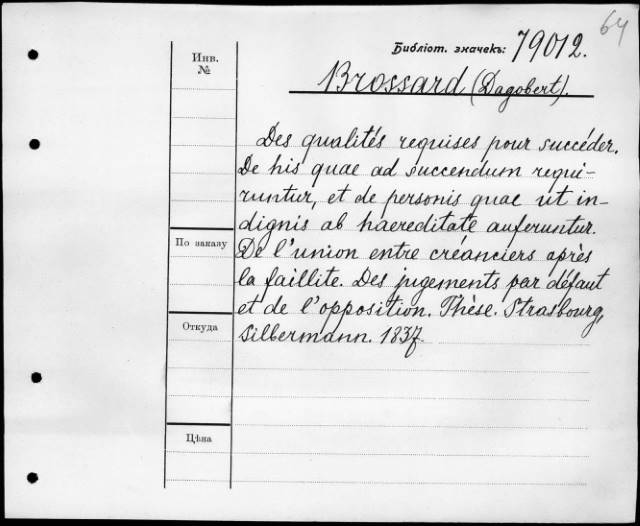 64
Библіот. значекъ: 79012.
Инв.
№
Brossard (Dagobert).
Des qualités requises pour succéder.
De his quae ad succendum requi-
runtur, et de personis quae ut in-
dignis ab haereditate auferuntur.
По заказу
De l'union entre créanciers après
la faillite. Des jugements par défaut
et de l'opposition. Thèse. Strasbourg,
Откуда
Silbermann. 1837.
Цѣна